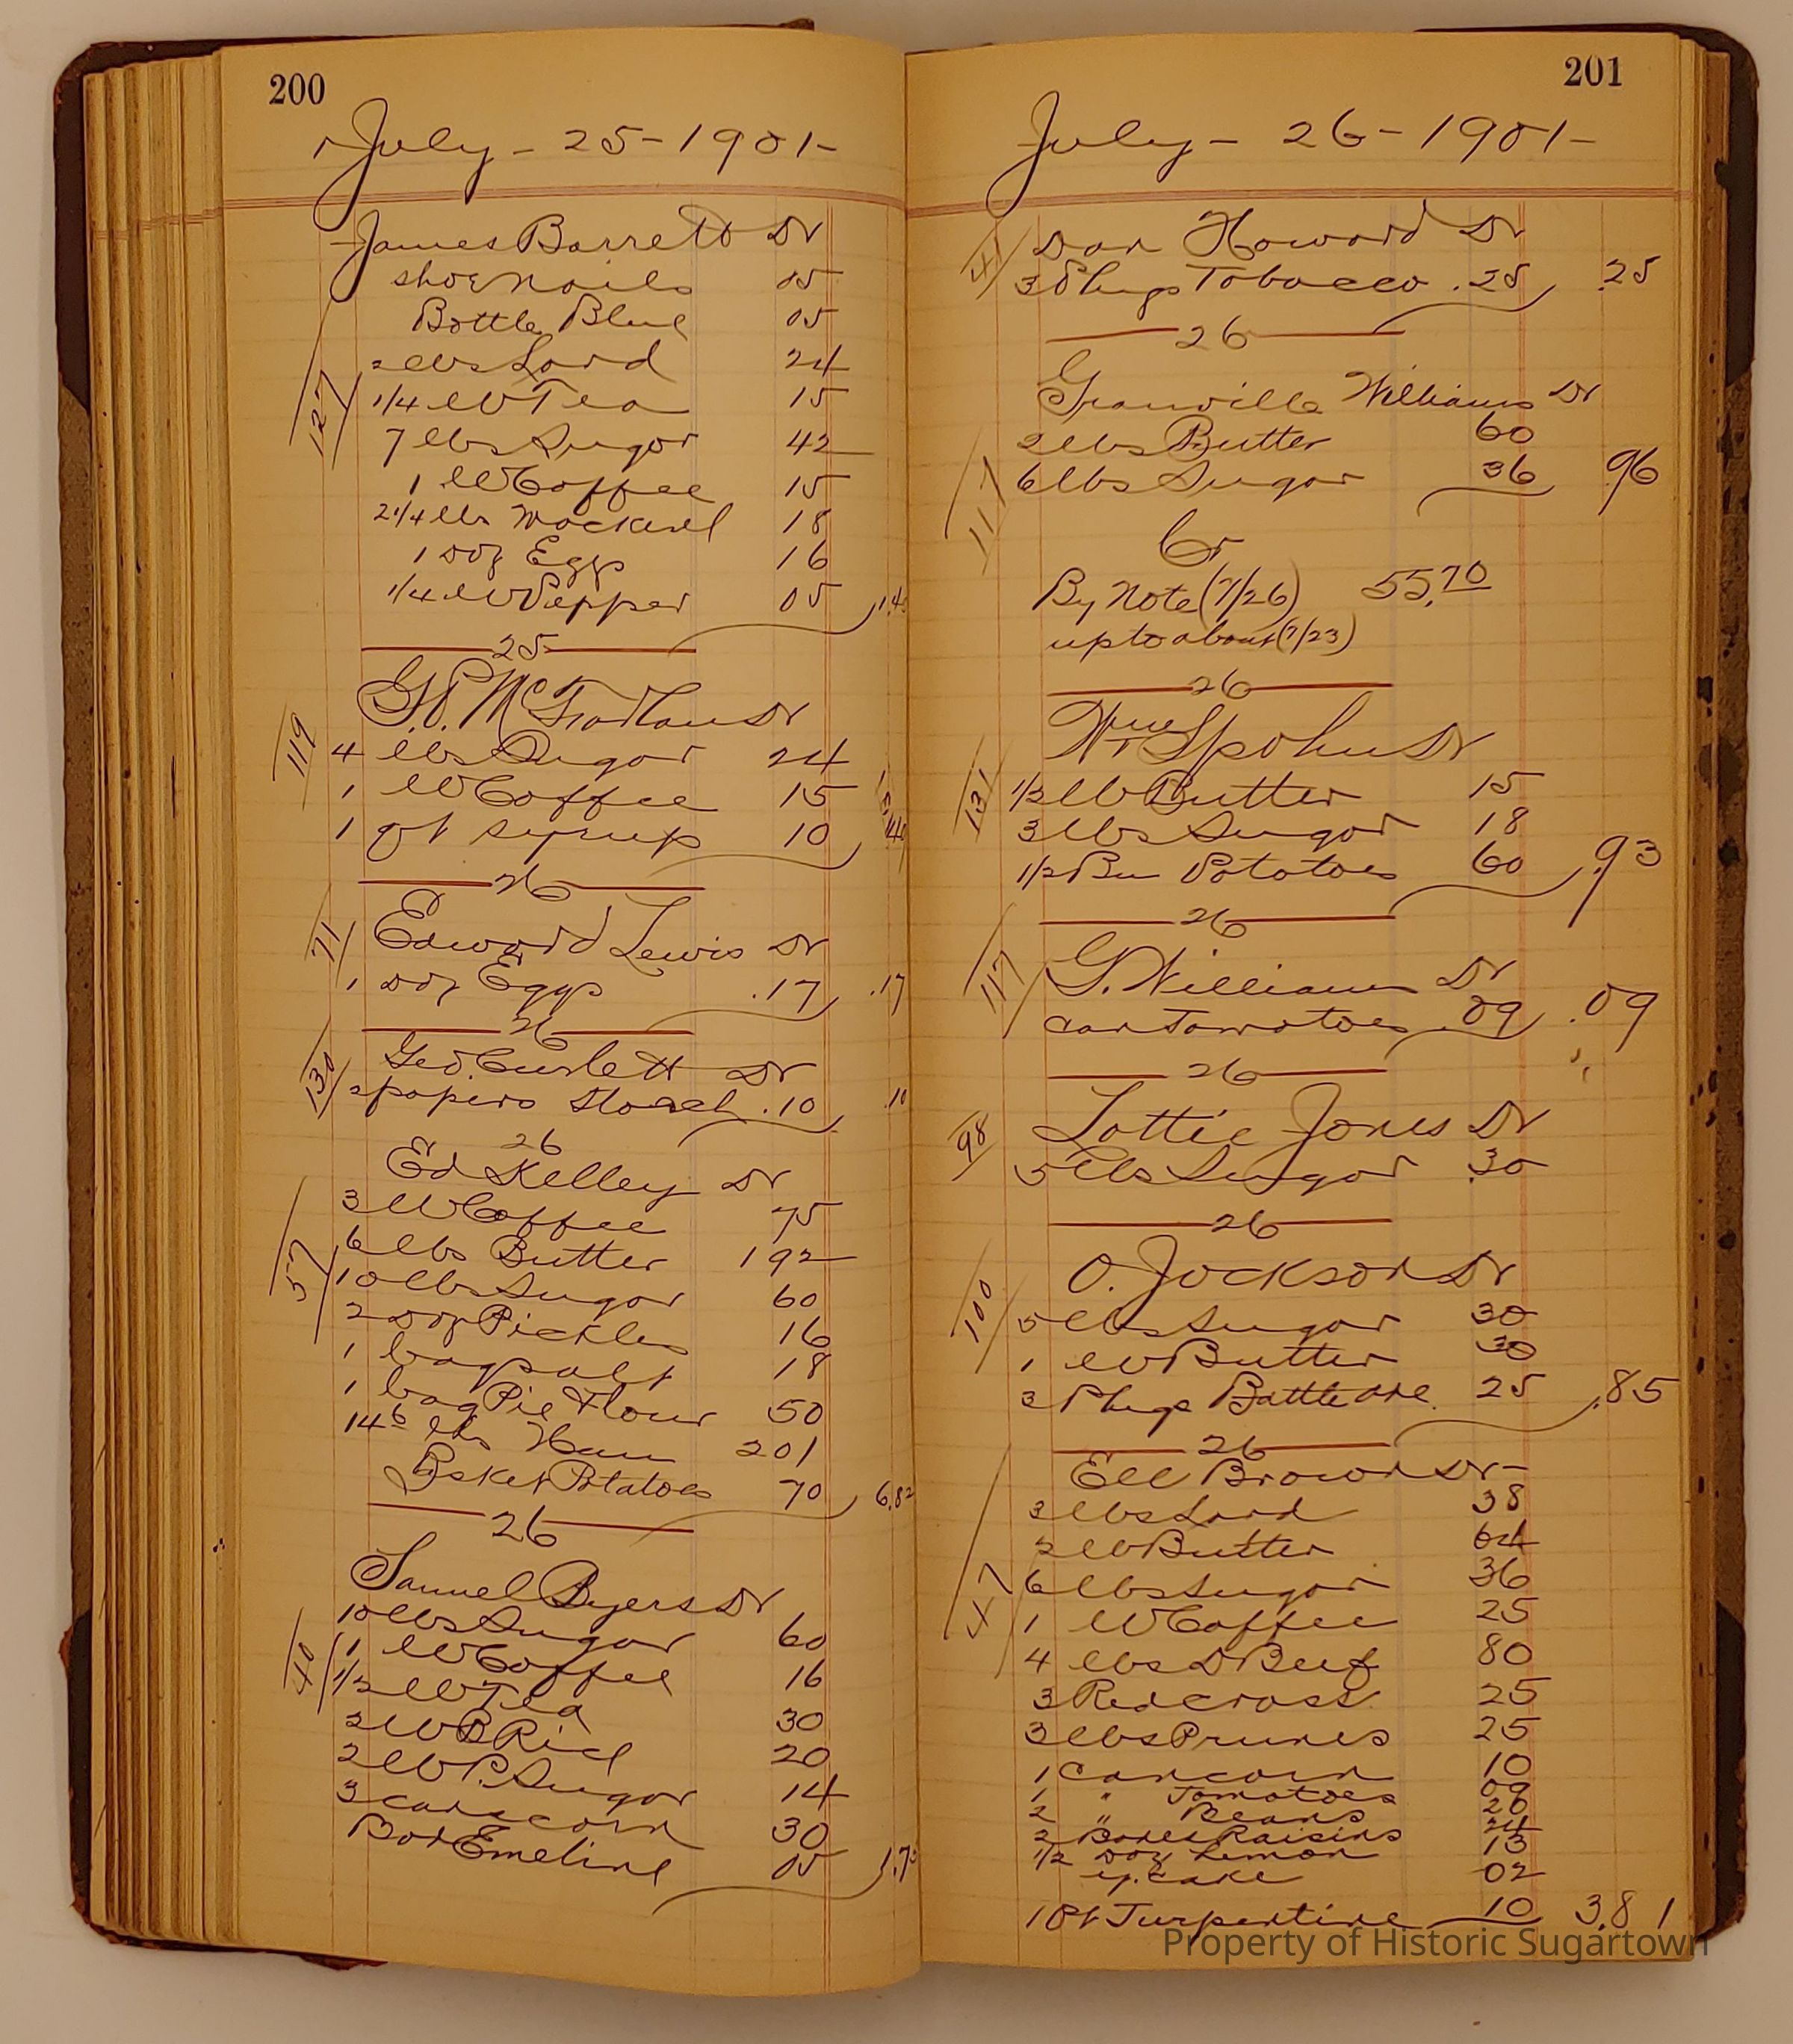 200
July - 25 - 1901 -
James Barrett Dr
127
shoe nails 05
Bottle Blue 05
2 lbs Lard 24
1/4 lb Tea 15
7 lbs Sugar 42
1 lb Coffee 15
2 1/4 lbs Mackerel 18
1 Doz Eggs 16
1/4 lb Pepper 05
25
Dr
119
4 lbs Sugar 24
1 lb Coffee 15
1 qt syrup 10
26
71
Edward Lewis Dr
1 Doz Eggs .17 .17
26
130
Geo. Curlett Dr
2 papers Starch .10 .10
26
Ed Kelley Dr
57
3 lb Coffee 75
6 lbs Butter 192
10 lbs Sugar 60
2 Doz Pickles 16
1 bag salt 18
1 bag Pie Flour 50
14 6 lbs Ham 201
Basket Potatoes 70 6.82
26
Samuel Byers Dr
40
10 lbs Sugar 60
1 lb Coffee 16
1/2 lb Tea 30
2 lb Rice 20
2 lb P. Sugar 14
3 cans corn 30
Box Emeline 05
201
July - 26 - 1901 -
41
Dan Howard Dr
3 Plugs Tobacco .25 .25
26
Granville Williams Dr
117
2 lbs Butter 60
6 lbs Sugar 36 .96
Cr
By Note (7/26) 55.70
up to about (7/23)
26
Wm Spohn Dr
131
1/2 lb Butter 15
3 lbs Sugar 18
1/2 Bu Potatoes 60 .93
26
117
G. Williams Dr
can Tomatoes .09 .09
26
98
Lottie Jones Dr
5 lbs Sugar .30
26
O. Jackson Dr
100
5 lbs Sugar 30
1 lb Butter 30
3 Plugs Battle axe. 25 .85
26
Ell Brown Dr -
47
3 lbs Lard 38
2 lb Butter 64
6 lbs Sugar 36
1 lb Coffee 25
4 lbs D Beef 80
3 Red cross 25
3 lbs Prunes 25
1 Can corn 10
1 " Tomatoes 09
2 " Beans 20
2 Boxes Raisins 24
1/2 Doz Lemon 13
y. cake 02
1 Pt Turpentine 10 3.81
Property of Historic Sugartown